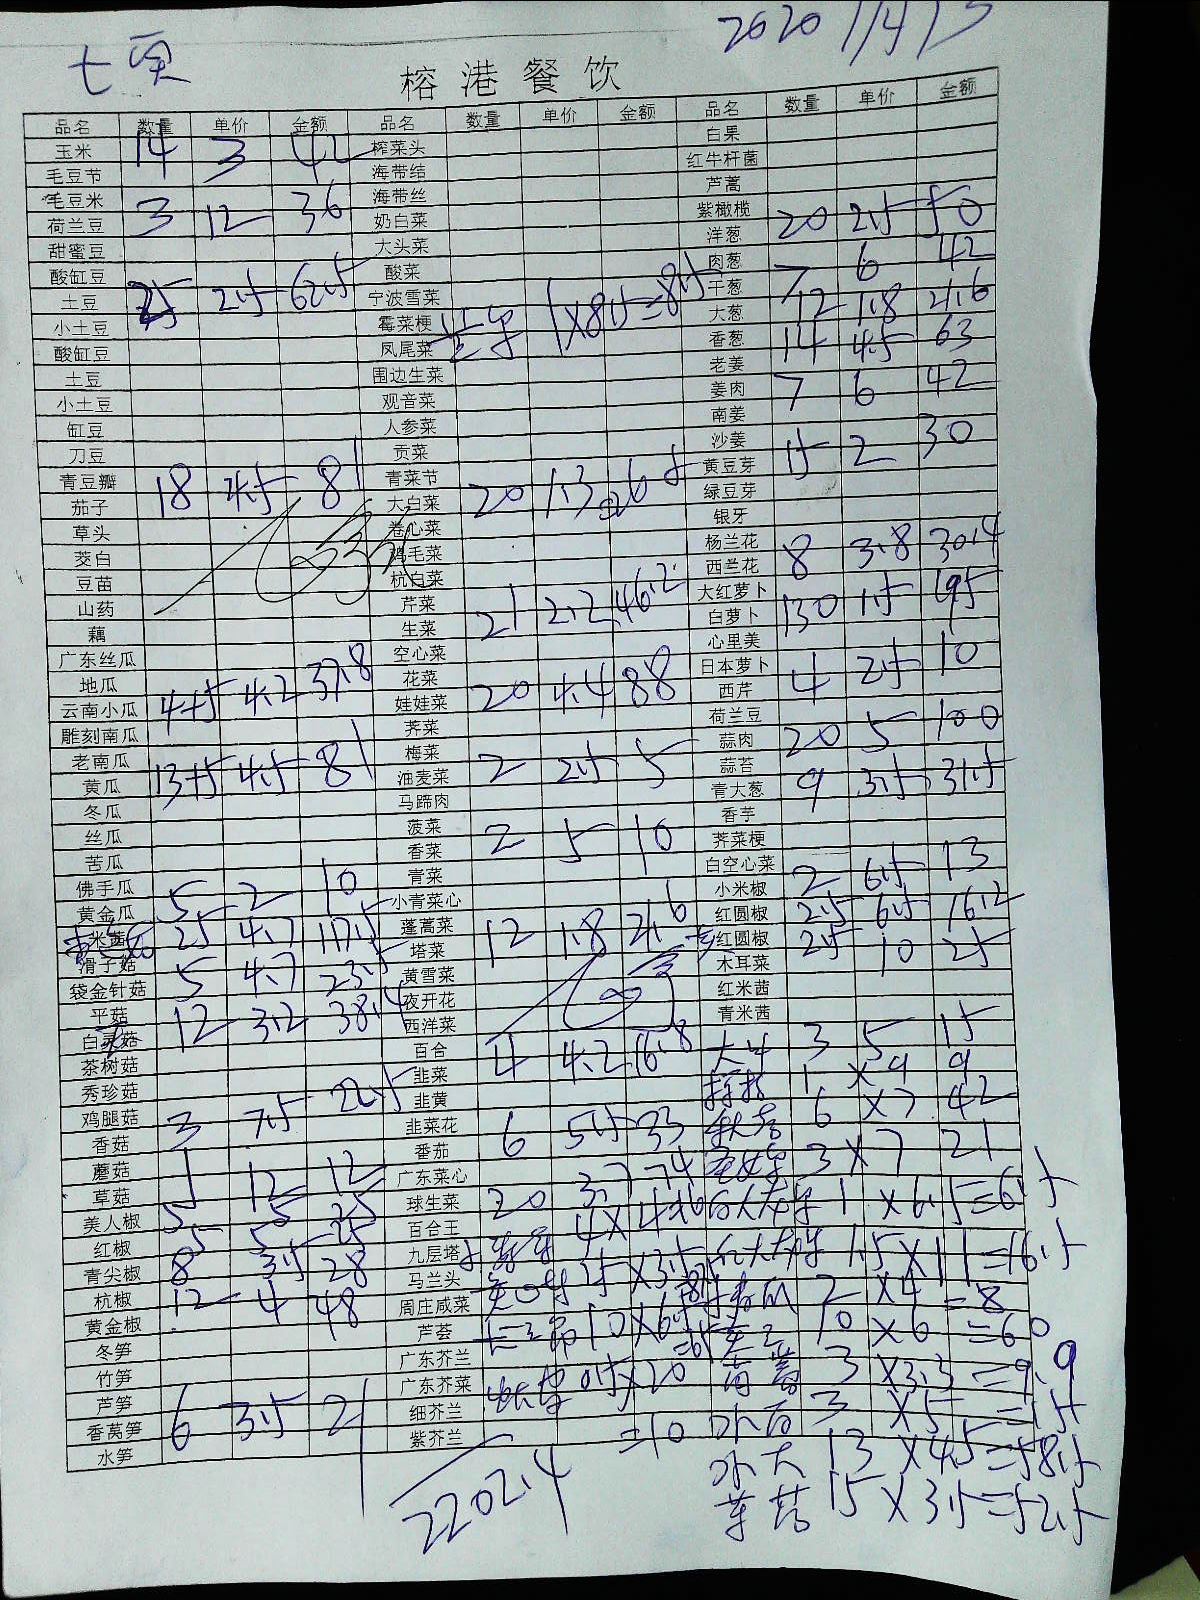 七页 2020 1/4/5
榕港餐饮
品名 数量 单价 金额 品名 数量 单价 金额 品名 数量 单价 金额
玉米 14 3 42 榨菜头 白果
毛豆节 海带结 红牛杆菌
毛豆米 3 12 36 海带丝 芦蒿
荷兰豆 奶白菜 紫橄榄 20 2.5 50
甜蜜豆 大头菜 洋葱
酸缸豆 酸菜 肉葱 7 6 42
土豆 25 2.5 62.5 宁波雪菜 干葱 12 1.8 21.6
小土豆 霉菜梗 1×8.5=8.5 大葱
酸缸豆 凤尾菜 香葱 14 4.5 63
土豆 围边生菜 老姜
小土豆 观音菜 姜肉 7 6 42
缸豆 人参菜 南姜
刀豆 贡菜 沙姜 15 2 30
青豆瓣 18 4.5 81 青菜节 黄豆芽
茄子 大白菜 20 1.3 26 绿豆芽
草头 卷心菜 银牙
茭白 鸡毛菜 杨兰花 8 3.8 30.4
豆苗 杭白菜 西兰花
山药 芹菜 21 2.2 46.2 大红萝卜
藕 生菜 白萝卜 130 1.5 195
广东丝瓜 空心菜 心里美
地瓜 花菜 20 4.4 88 日本萝卜 4 2.5 10
云南小瓜 4+5 4.2 37.8 娃娃菜 西芹
雕刻南瓜 荠菜 荷兰豆
老南瓜 梅菜 2 2.5 5 蒜肉 20 5 100
黄瓜 13+5 4.5 81 油麦菜 蒜苔 9 3.5 31.5
冬瓜 马蹄肉 青大葱
丝瓜 菠菜 2 5 10 香芋
苦瓜 香菜 荠菜梗
佛手瓜 5 2 10 青菜 白空心菜 2 6.5 13
黄金瓜 小青菜心 小米椒
米茜 25 4.7 117.5 蓬蒿菜 12 1.8 21.6 红圆椒 2.5 6.5 16.2
滑子菇 塔菜 红圆椒 2.5 10 25
袋金针菇 5 4.7 23.5 黄雪菜 木耳菜
平菇 12 3.2 38.4 夜开花 红米茜
白灵菇 西洋菜 青米茜
茶树菇 百合 4 4.2 16.8 3 5 15
秀珍菇 韭菜 1 ×9 9
鸡腿菇 3 7.5 22.5 韭黄 6 ×7 42
香菇 韭菜花 6 5.5 33 3×7 21
蘑菇 1 12 12 番茄
草菇 5 5 25 广东菜心 20 3.7 74 1 ×6.5=6.5
美人椒 5 5 25 球生菜 1.5×11=16.5
红椒 8 3.5 28 百合王 2 ×4 =8
青尖椒 12 4 48 九层塔 10 ×6 =60
杭椒 马兰头 青蒿 3 ×3.3 =9.9
黄金椒 周庄咸菜 3 ×5 =15
冬笋 芦荟
竹笋 广东芥兰
芦笋 广东芥菜 0.5×20
香莴笋 6 3.5 21 细芥兰
水笋 紫芥兰 =10
2202.4
13 ×4.5=58.5
15 ×3.5=52.5